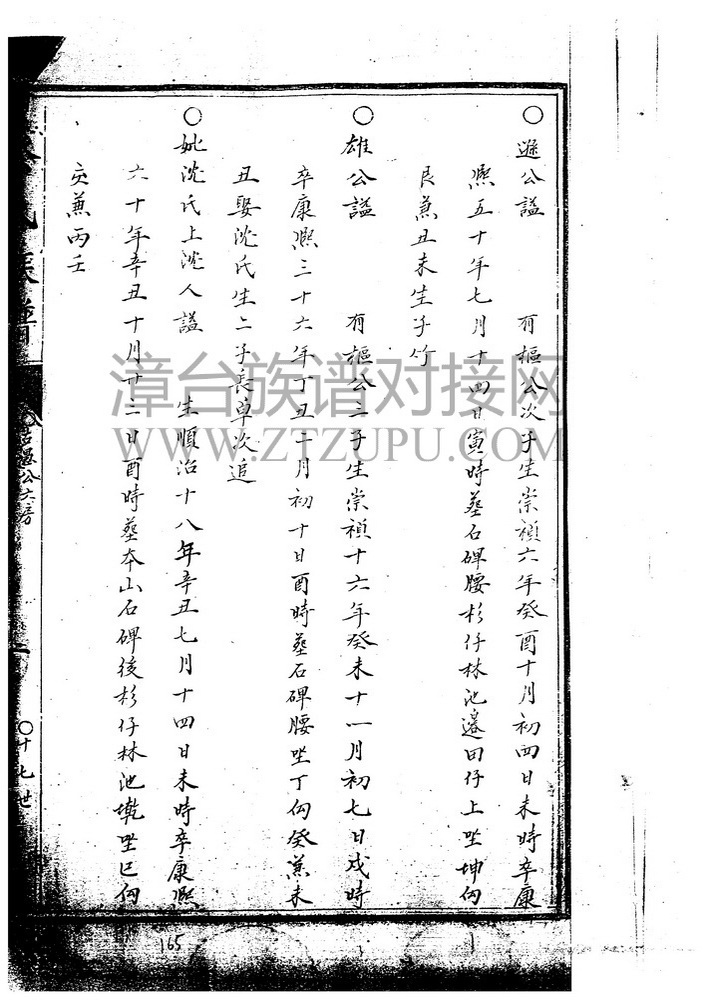 ○遜公諡 有樞公次子生崇禎六年癸酉十月初四日未時卒康
熙五十年七月十四日寅時墓石碑腰杉仔林池邊田仔上坐坤向
艮兼丑未生子竹
○雄公諡 有樞公三子生崇禎十六年癸未十一月初七日戌時
卒康熙三十六年丁丑二月初十日酉時墓石碑腰坐丁向癸兼未
丑娶沈氏生二子長草次追
○妣沈氏上沈人諡 生順治十八年辛丑七月十四日未時卒康熙
六十年辛丑十月廿二日酉時墓本山石碑後杉仔林池墘坐巳向
亥兼丙壬
公六房
○十七世
漳台族谱对接网
WWW.ZTZUPU.COM
165